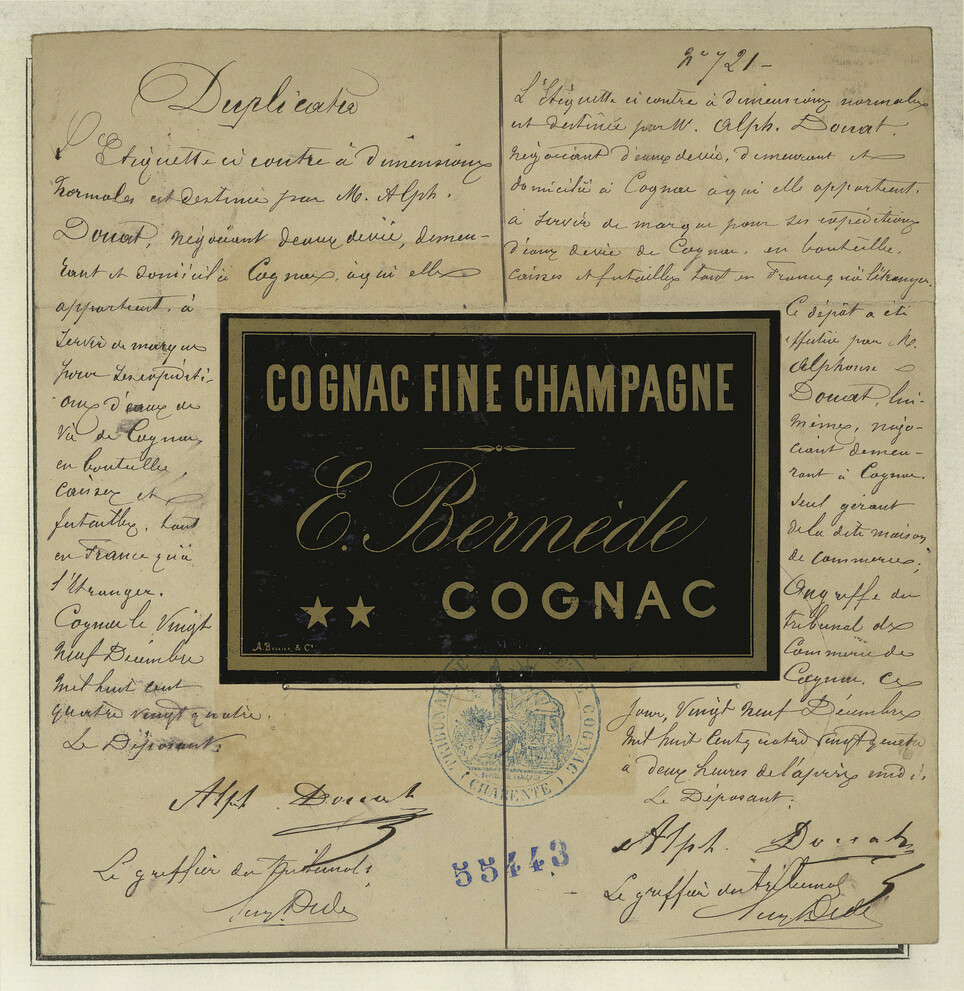 Duplicata
L'Etiquette ci contre à dimensions
normales est destinée par M. Alph.
Douat, négociant d'eaux de vie, demeu-
rant et domicilié à Cognac, à qui elle
appartient, à
servir de marque
pour ses expéditi-
ons d'eaux de
vie de Cognac,
en bouteilles,
caisses et
futailles, tant
en France qu'à
l'Etranger.
Cognac le Vingt
Neuf Décembre
mil huit cent
quatre vingt quatre.
Le Déposant
Alph. Douat
Le greffier du tribunal
No 721
L'Etiquette ci contre à dimensions normales
est destinée par M. Alph. Douat,
négociant d'eaux de vie, demeurant et
domicilié à Cognac à qui elle appartient,
à servir de marque pour ses expéditions
d'eaux de vie de Cognac, en bouteilles,
caisses et futailles tant en France qu'à l'étranger.
Ce dépôt a été
effectué par M.
Alphonse
Douat, lui-
même, négo-
ciant demeu-
rant à Cognac.
seul gérant
de la dite maison
de commerce,
au greffe du
tribunal de
Commerce de
Cognac, ce
jour, Vingt Neuf Décembre
mil huit cent quatre vingt quatre
à deux heures de l'après midi.
Le Déposant.
Alph. Douat
Le greffier du tribunal
COGNAC FINE CHAMPAGNE
E. Bernède
COGNAC
TRIBUNAL DE COGNAC
(CHARENTE)
55443